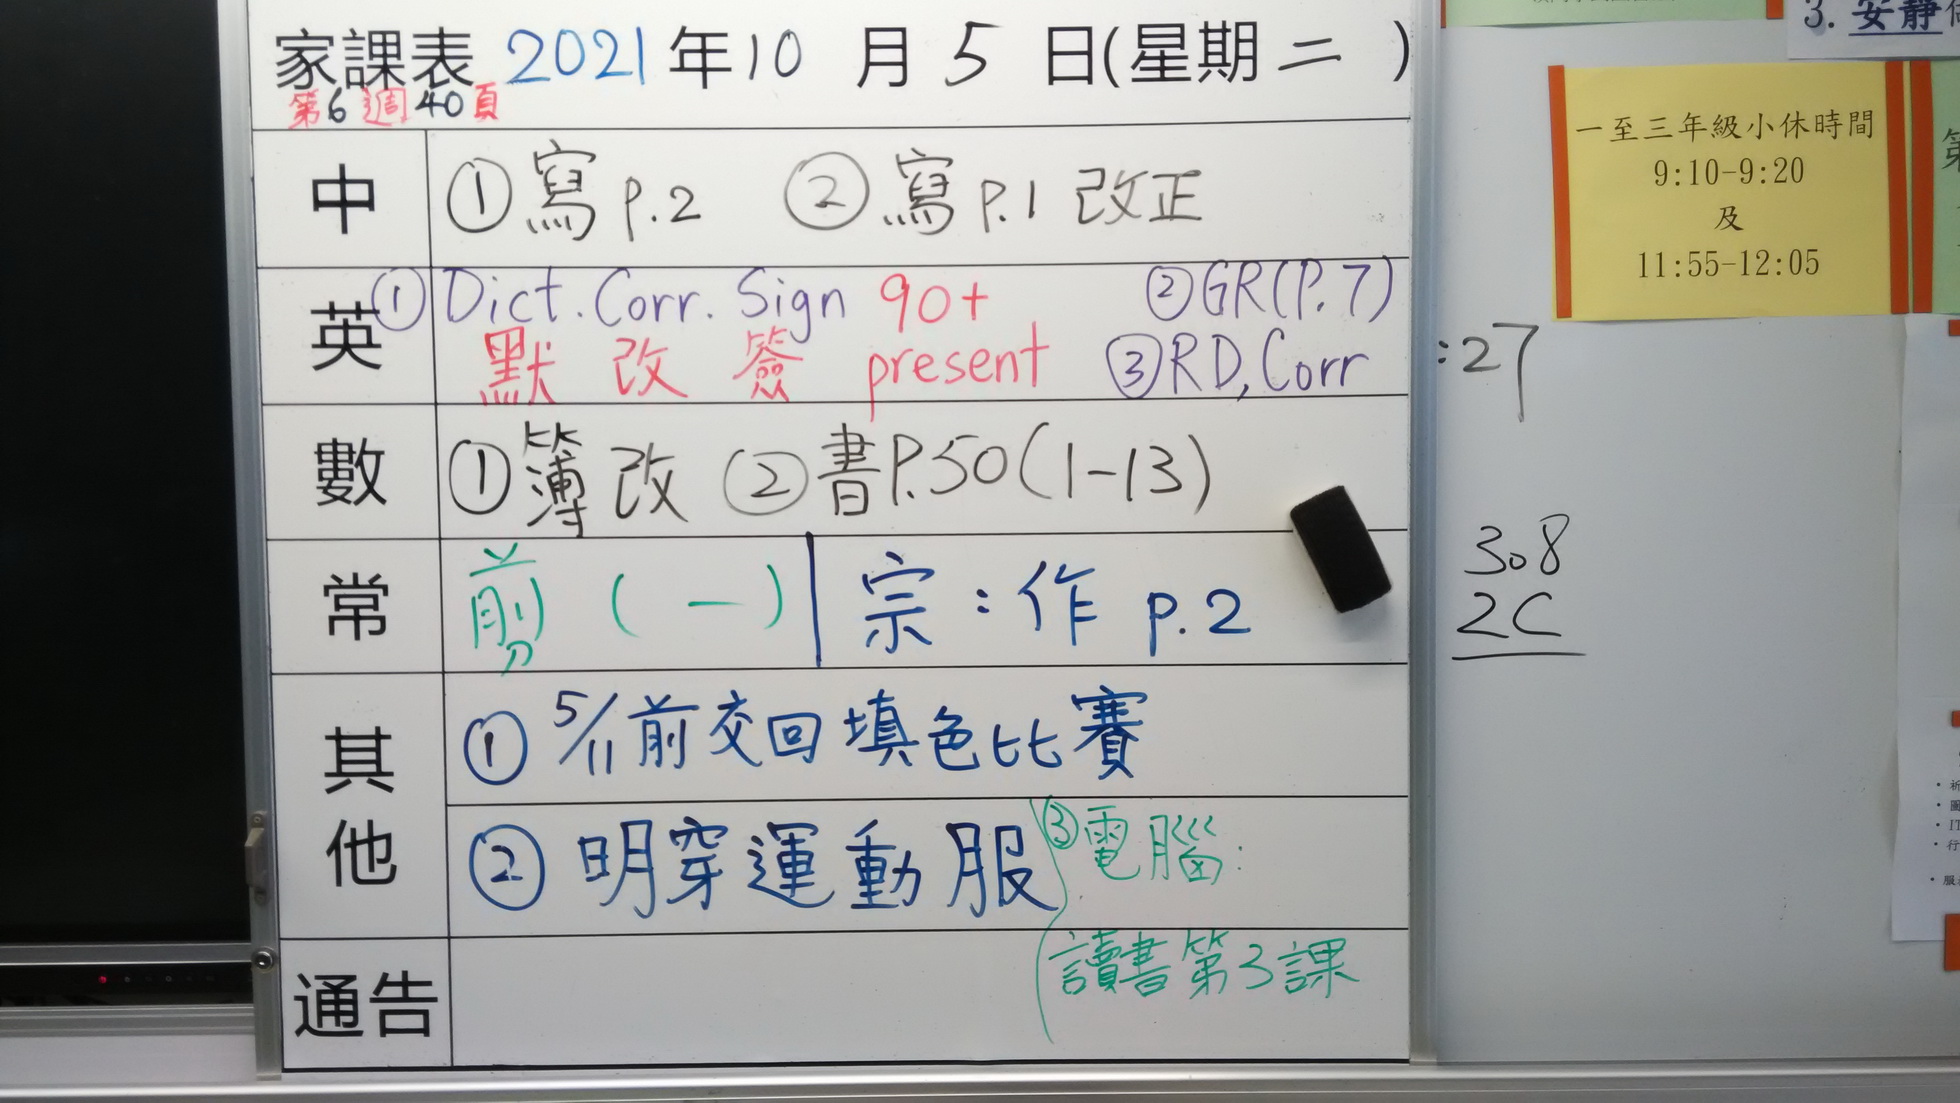 家課表 2021年10月5日(星期二)
第6週40頁
中 ①寫p.2 ②寫p.1改正
英 ①Dict. Corr. Sign 90+ ②GR(P.7)
默 改 簽 present ③RD, Corr
數 ①簿改 ②書P.50(1-13)
常 剪(一) 宗:作p.2
其他
① 5/11前交回填色比賽
② 明穿運動服
③電腦:
讀書第3課
通告
:27
3.8
2C
3. 安靜
一至三年級小休時間
9:10-9:20
及
11:55-12:05